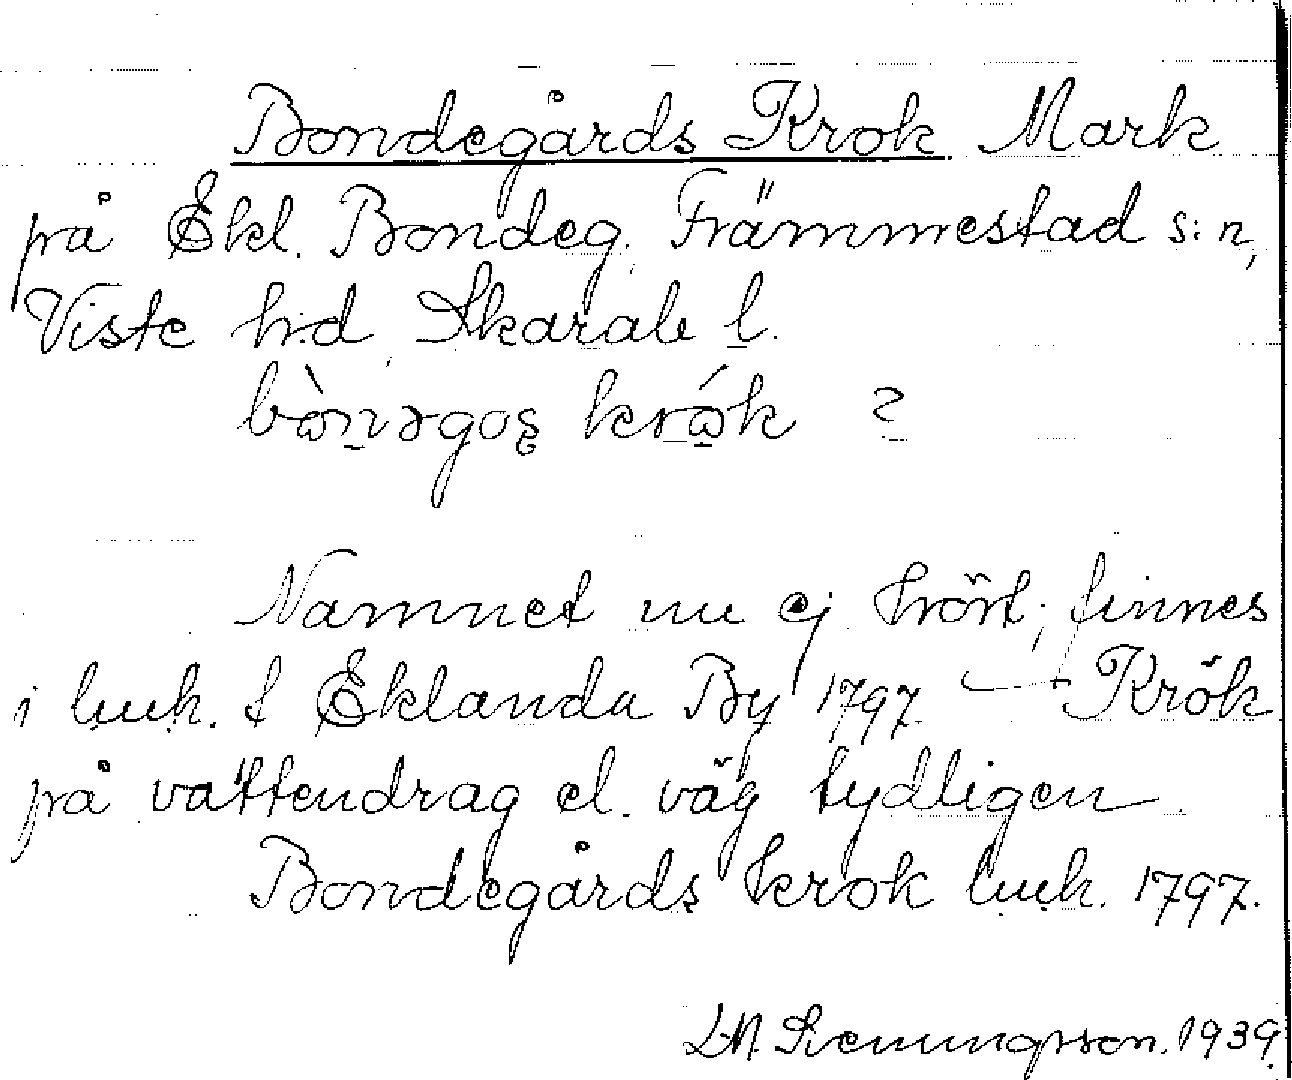 Bondegårds Krok Mark
på Ekl. Bondeg. Främmestad s:n,
Viste h:d, Skarab. l.
bòn̠əgos̨ krǻk ?
Namnet nu ej hört; finnes
i luuk. f Eklanda By 1797. — Krök
på vattendrag el. väg tydligen.
Bondegårds krok luuk. 1797.
Svenungsson. 1939.